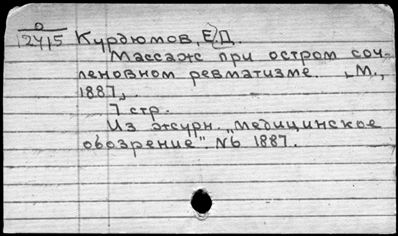 О
2415
Курдюмов, Е.Д.
Массаж при остром соч-
леновном ревматизме. „М.,
1887„.
7 стр.
Из журн. „Медицинское
обозрение" №6 1887.